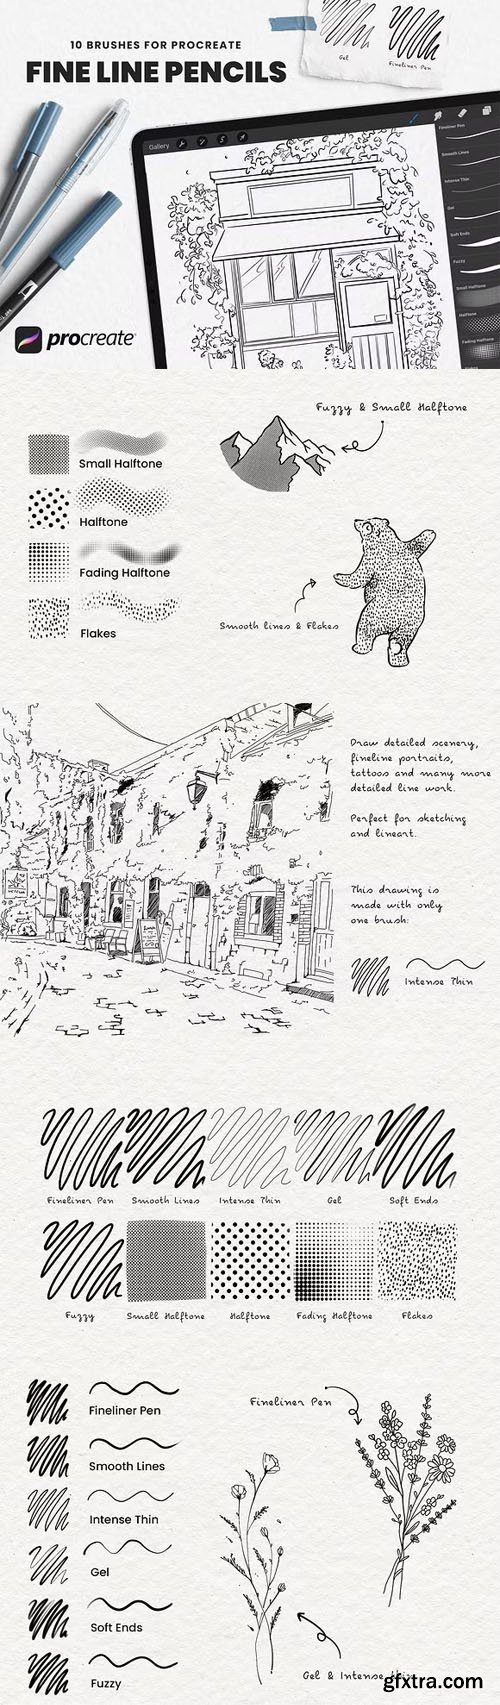 10 BRUSHES FOR PROCREATE
FINE LINE PENCILS
Gel
Fineliner Pen
Gallery
Fineliner Pen
Smooth Lines
Intense Thin
Gel
Soft Ends
Fuzzy
Small Halftone
Halftone
Fading Halftone
procreate
Fuzzy & Small Halftone
Small Halftone
Halftone
Fading Halftone
Flakes
Smooth lines & Flakes
Draw detailed scenery,
fineline portraits,
tattoos and many more
detailed line work.
Perfect for sketching
and lineart.
This drawing is
made with only
one brush:
Intense Thin
Fineliner Pen
Smooth Lines
Intense Thin
Gel
Soft Ends
Fuzzy
Small Halftone
Halftone
Fading Halftone
Flakes
Fineliner Pen
Smooth Lines
Intense Thin
Gel
Soft Ends
Fuzzy
Fineliner Pen
Gel & Intense thin
gfxtra.com